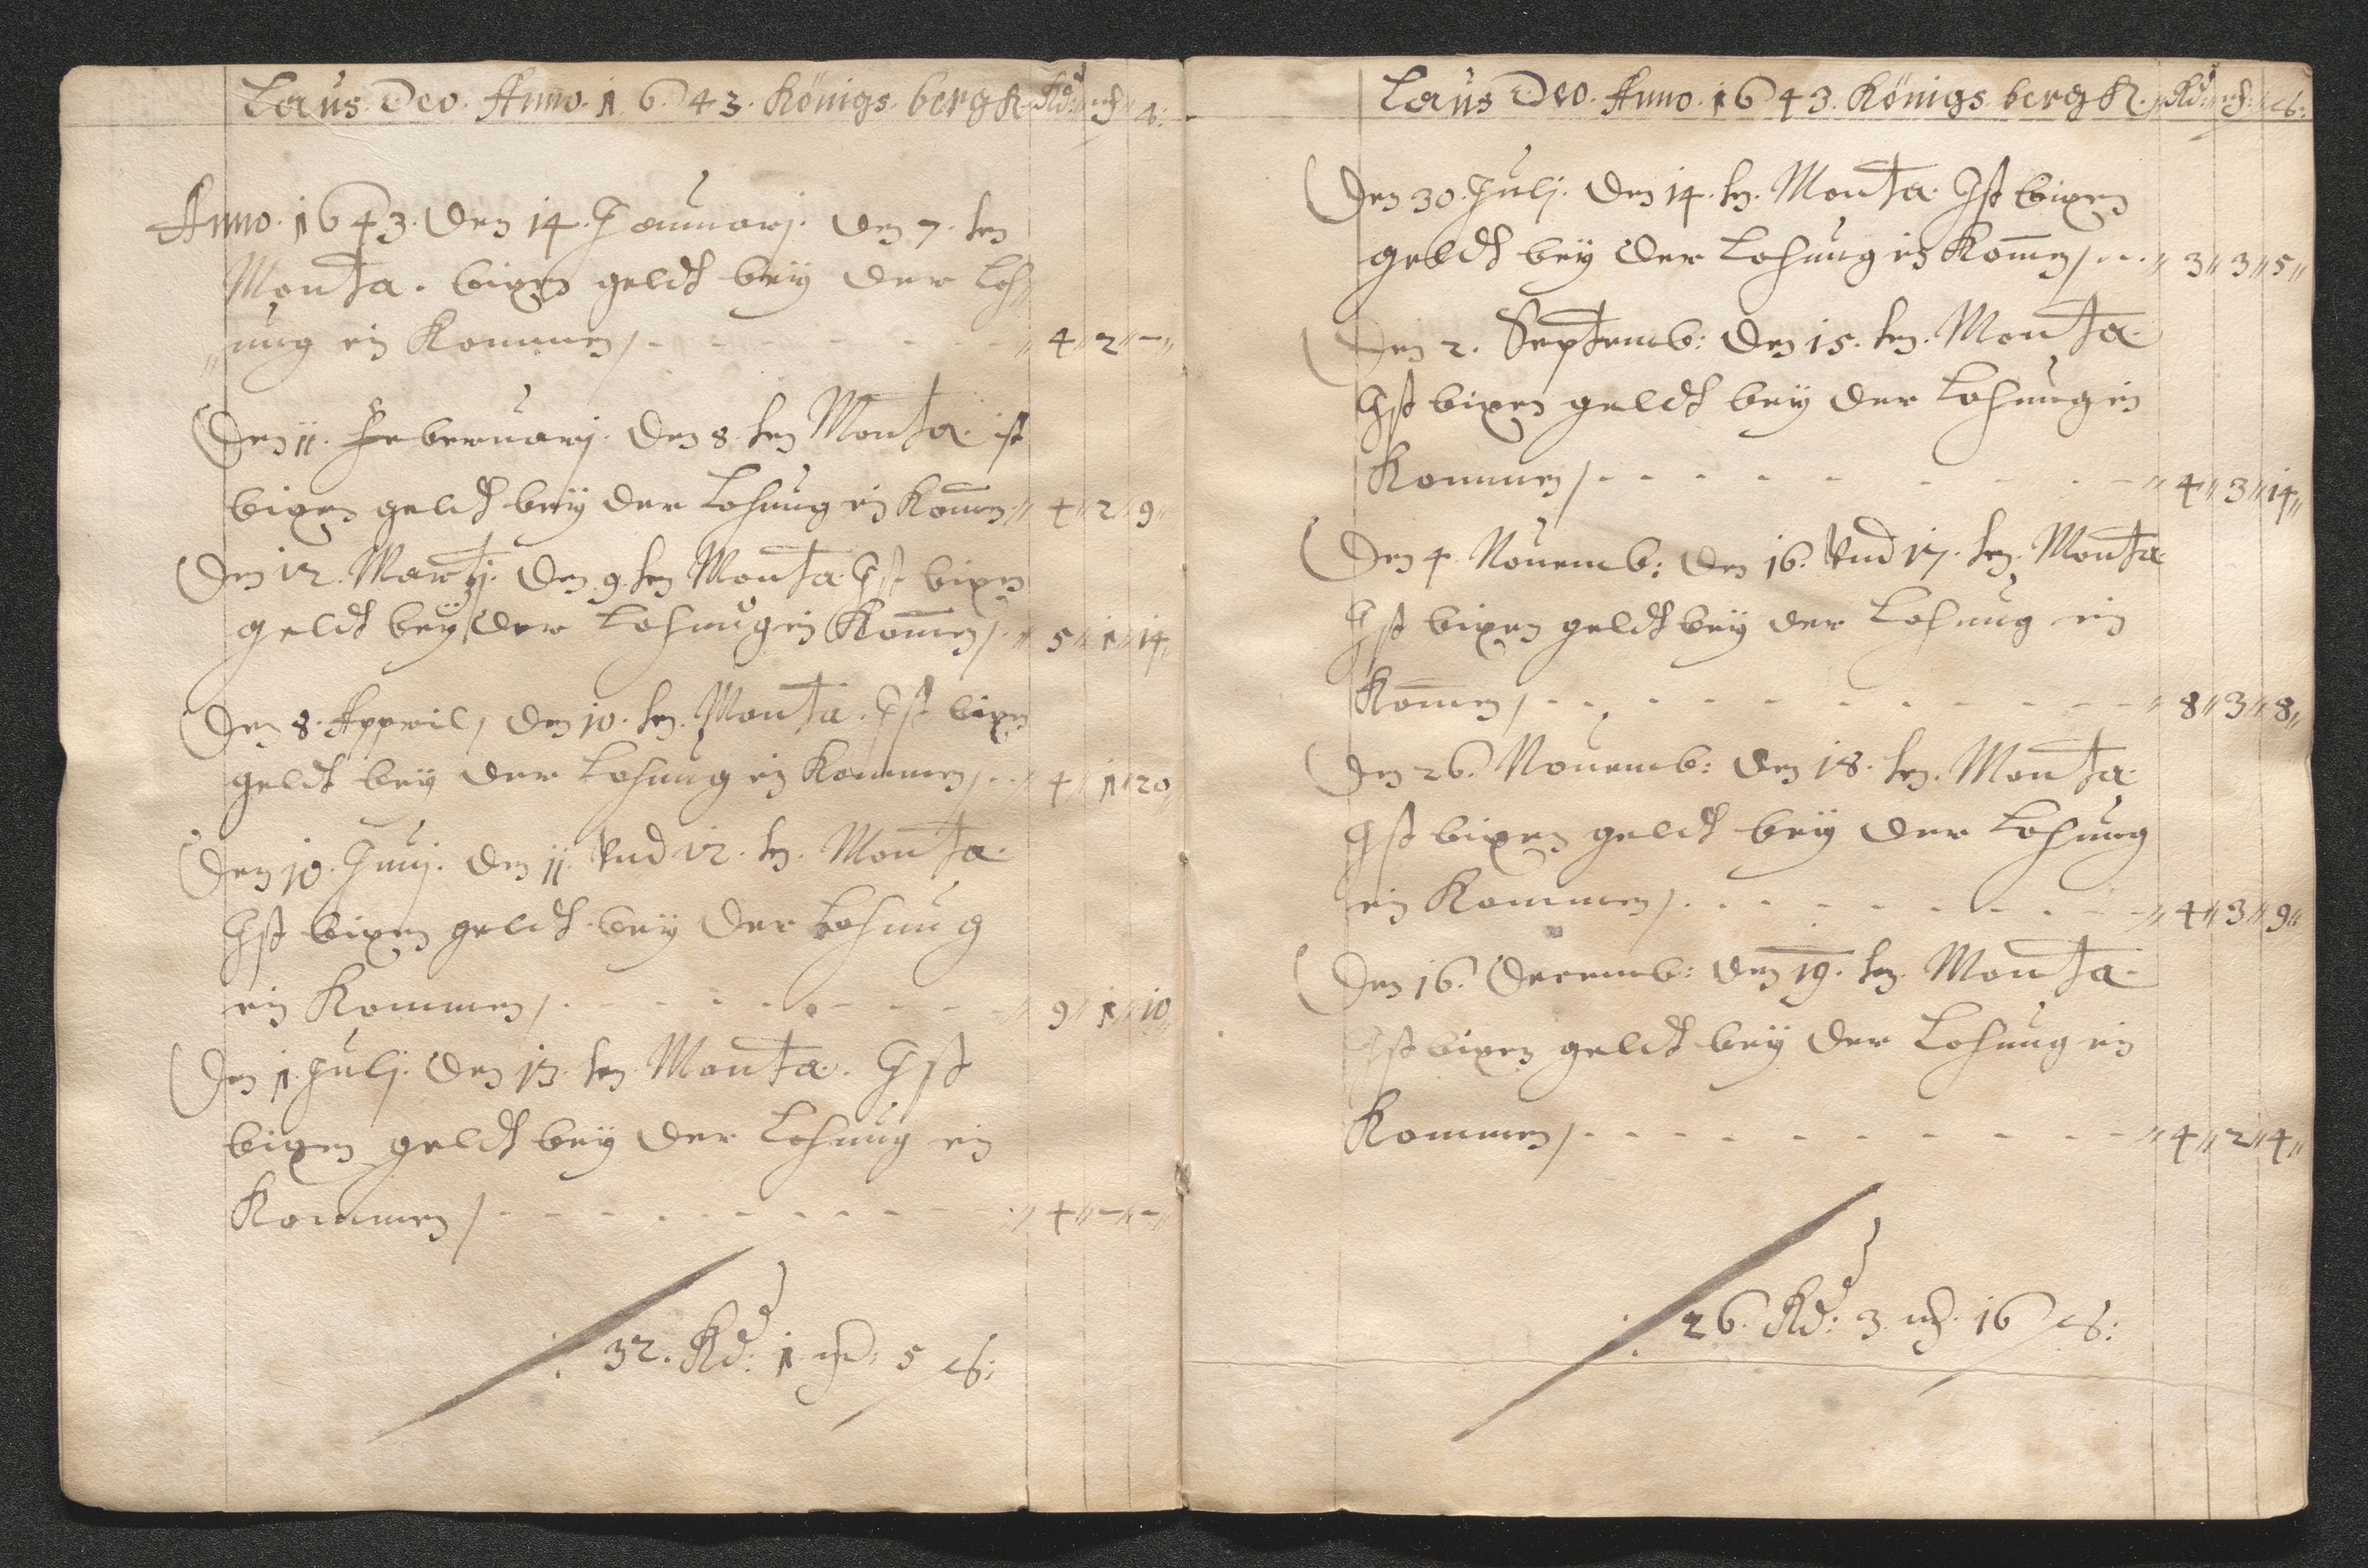 Laus Deo. Anno. 1643. Königs bergk Rd: m℔ ß:
Anno. 1643. Den 14. Januarj. den 7. ten
Monta. bixen geldt bey der Loh
nung ein Kommen / 4 2 -
Den 11. Feberuarj. Den 8. ten Monta. ist
bixen geldt bey der Lohnung ein Komen 4 2 9
Den 12. Martj. Den 9. ten Monta Ist bixen
geldt bey der Lohnung ein Komen / 5 1 14
Den 8. Appril, den 10. ten. Monta. Ist bixen
geldt bey der Lohnung ein Kommen / 4 1 20
Den 10. Junj. den 11. Vnd 12. ten. Monta.
Ist bixen geldt bey der Lohnung
ein Kommen / 9 1 10
Den 1. Julj. Den 13. ten. Monta. Ist
bixen geldt bey der Lohnung ein
Kommen / 4 - -
32. Rd: 1. 5 ß:
Laus Deo. Anno. 1643. Königs bergk. Rd: ß:
Den 30. Julj. Den 14. ten. Monta. Ist bixen
geldt bey der Lohnung ein Komen / 3 3 5
Den 2. Septemb: Den 15. ten. Monta.
Ist bixen geldt bey der Lohnung ein
Kommen / 4 3 14
Den 4. Nouemb: Den 16. Vnd 17. ten. Monta
Ist bixen geldt bey der Lohnung ein
Komen / 8 3 8
Den 26. Nouemb: Den 18. ten. Monta.
Ist bixen geldt bey der Lohnung
ein Kommen / 4 3 9
Den 16. Decemb: den 19. ten. Monta.
Ist bixen geldt bey der Lohnung ein
Kommen / 4 2 4
26. Rd: 3. 16 ß: